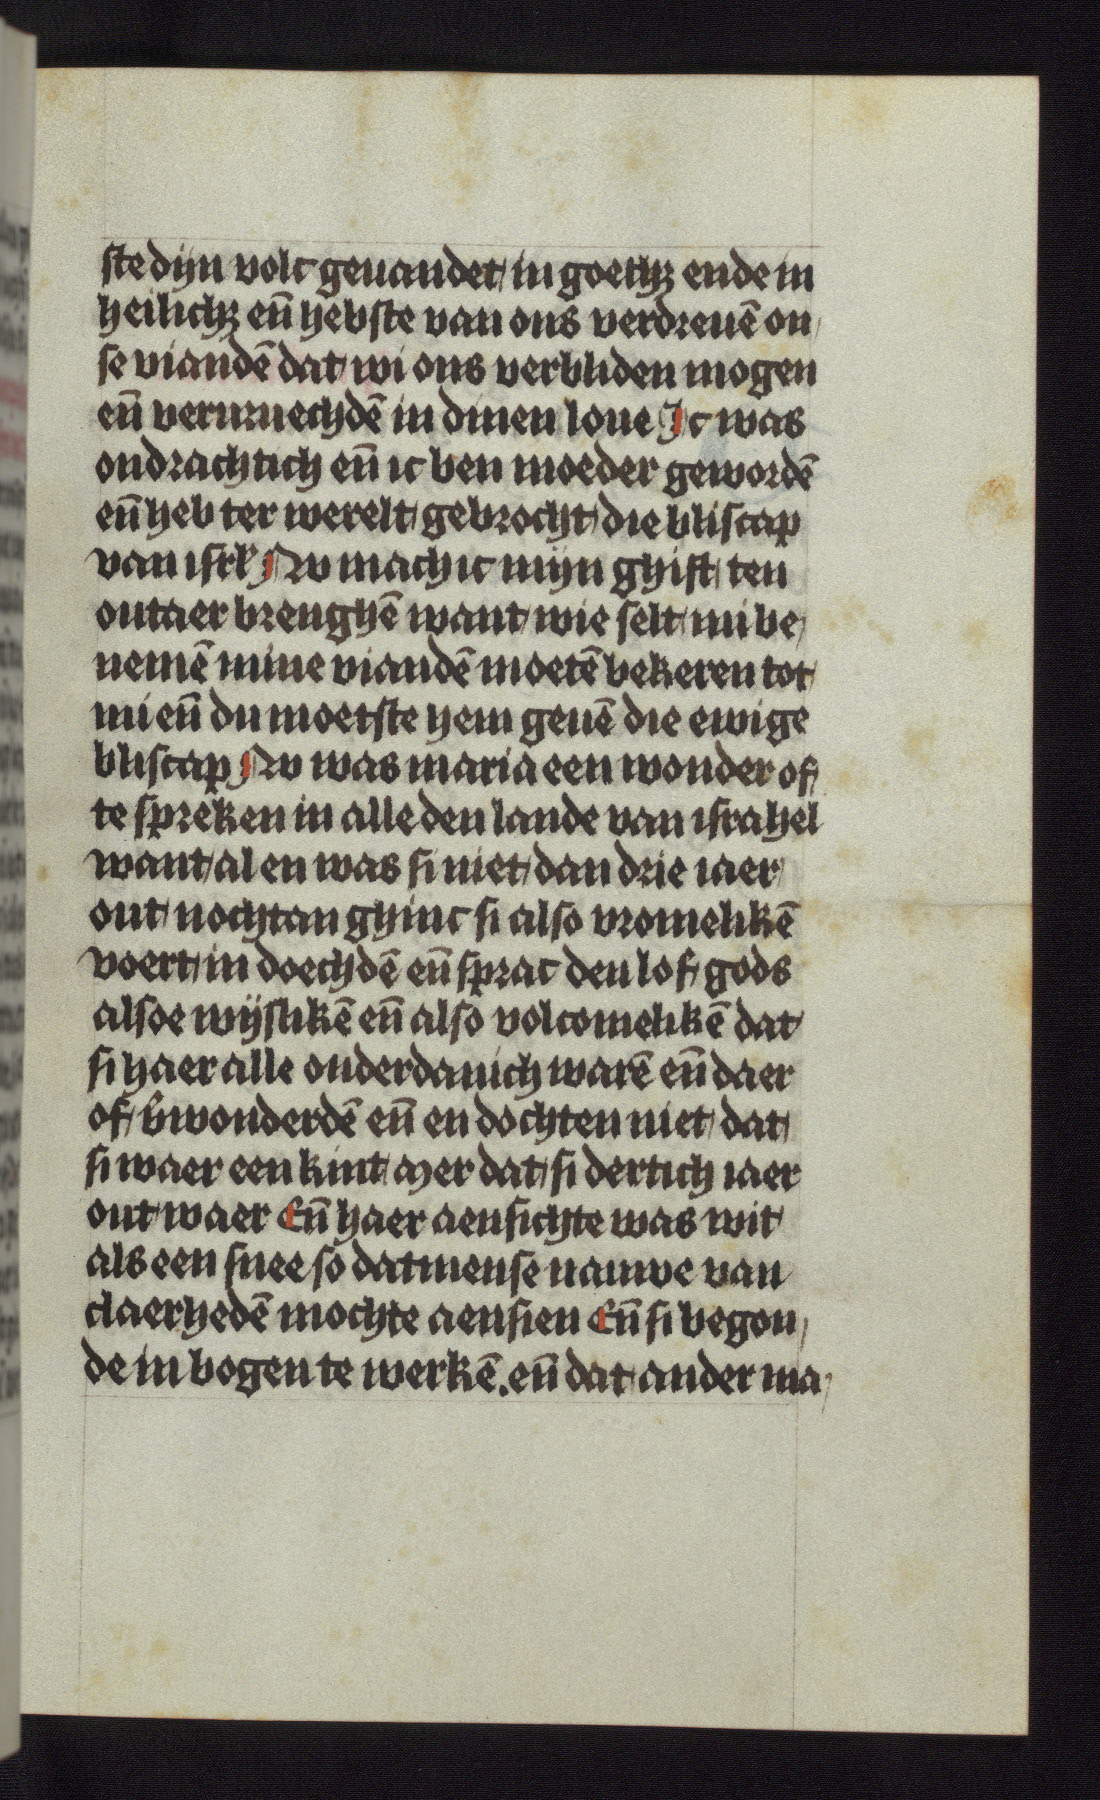 ste dijn volc geuandet in goethꝫ ende in
heilichꝫ en̄ hebste van ons verdreuē on
se viandē dat wi ons verbliden mogen
en̄ veruruechdē in dinen loue Ic was
ondrachtich en̄ ic ben moeder gewordē
en̄ heb ter werelt gebrocht die bliscap
van isrł Nv mach ic mijn ghift ten
outaer brenghē want wie selt mi be
nemē mine viandē moetē bekeren tot
mi en̄ du moetste hem geuē die ewige
bliscap Nv was maria een wonder of
te sprekēn in alle den lande van israhel
want al en was si niet dan drie iaer
out nochtan ghinc si also vromelikē
voert in doechdē en̄ sprac den lof gods
alsoe wijslikē en̄ also volcomelikē dat
si haer alle onderdanich warē en̄ daer
of v̄wonderdē en̄ en dochten niet dat
si waer een kint mer dat si dertich iaer
out waer En̄ haer aensichte was wit
als een snee so datmense nauwe van
claerhedē mochte aensien En̄ si begon
de in bogen te werkē. en̄ dat ander ma